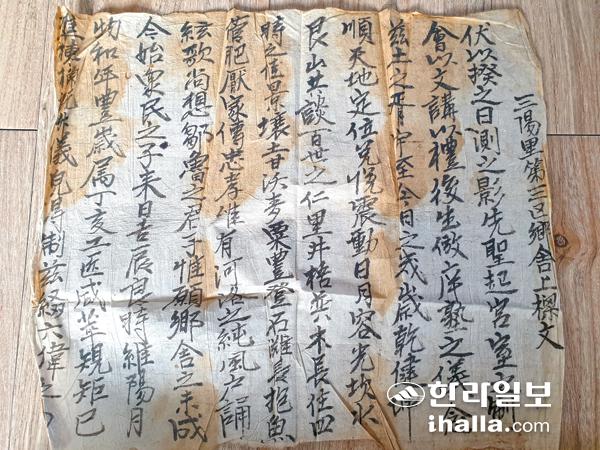 三陽里第三区鄕舍上樑文
伏以揆之日測之影先聖起宮室之制
會以文講以禮後生倣庠塾之儀今
玆土之胥宇至今日之歲歲乾健坤
順天地定位兌悅震動日月容光坎水
艮山共談百世之仁里井梧巽木長佳四
時之佳景壤吉沃麥粟豊登石雖長抱魚
肥厭家傳忠孝惟有河洛之純風戶誦
絃歌尙想鄒魯之是乎惟願鄕舍之未成
今始衆民之子來日吉辰良時維陽月
物和年豊歲屬丁亥工匠咸萃規矩已
制玆
한라일보
ihalla.com